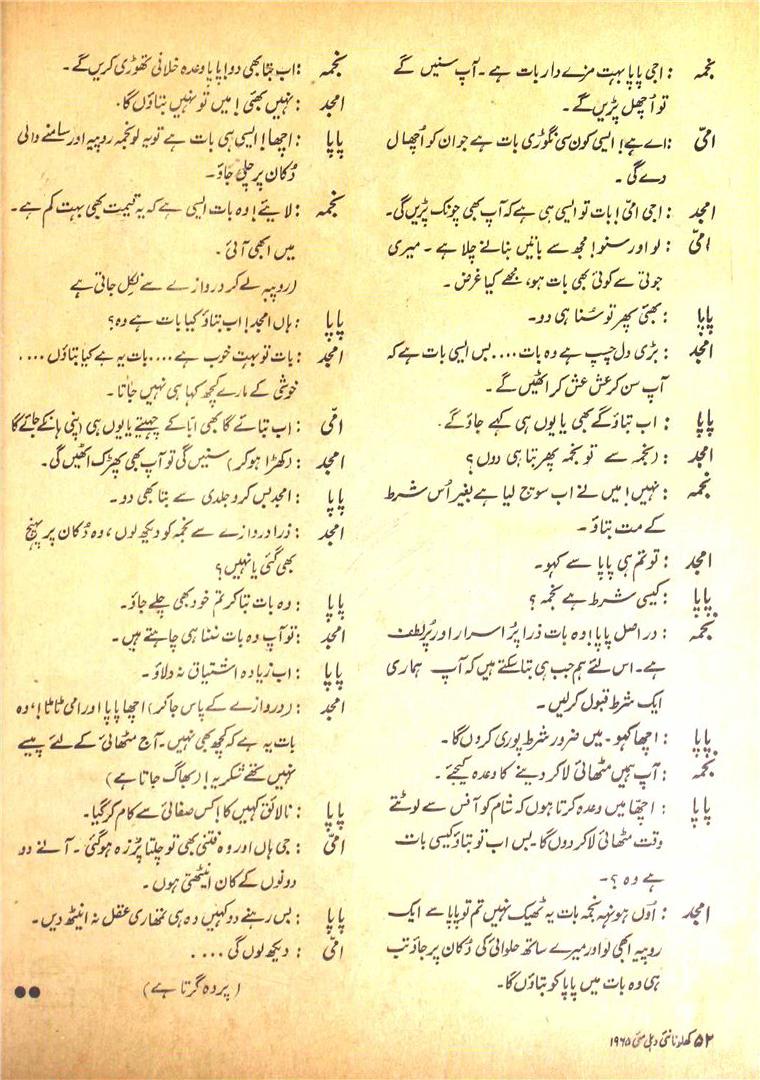 نجمہ : اجی پاپا بہت مزے دار بات ہے ۔ آپ سنیں گے
تو اُچھل پڑیں گے ۔
امّی : اے ہے! ایسی کون سی نگوڑی بات ہے جو ان کو اُچھال
دے گی ۔
امجد : اجی امّی! بات تو ایسی ہی ہے کہ آپ بھی چونک پڑیں گی۔
امّی : لو اور سنو! مجھ سے باتیں بنانے چلا ہے ۔ میری
جوتی سے کوئی بھی بات ہو، مجھے کیا غرض ۔
پاپا : بھئی پھر تو سُنا ہی دو۔
امجد : بڑی دل چسپ ہے وہ بات .... بس ایسی بات ہے کہ
آپ سن کر عش عش کر اٹھیں گے ۔
پاپا : اب بتاؤ گے بھی یا یوں ہی کہے جاؤ گے ۔
امجد : (نجمہ سے) تو نجمہ پھر بتا ہی دوں ؟
نجمہ : نہیں! میں نے اب سوچ لیا ہے بغیر اُس شرط
کے مت بتاؤ ۔
امجد : تو تم ہی پاپا سے کہو۔
پاپا : کیسی شرط ہے نجمہ ؟
نجمہ : در اصل پاپا! وہ بات ذرا پُر اسرار اور پُر لطف
ہے۔ اس لئے ہم جب ہی بتا سکتے ہیں کہ آپ ہماری
ایک شرط قبول کرلیں ۔
پاپا : اچھا کہو ۔ میں ضرور شرط پوری کروں گا۔
نجمہ : آپ ہمیں مٹھائی لا کر دینے کا وعدہ کیجئے ۔
پاپا : اچھا میں وعدہ کرتا ہوں کہ شام کو آفس سے لوٹتے
وقت مٹھائی لا کر دوں گا۔ بس اب تو بتاؤ کیسی بات
ہے وہ ؟۔
امجد : اوں ہونہہ نجمہ بات یہ ٹھیک نہیں تم تو پاپا سے ایک
روپیہ ابھی لو اور میرے ساتھ حلوائی کی دُکان پر جاؤ تب
ہی وہ بات میں پاپا کو بتاؤں گا۔
نجمہ : اب بتا بھی دو! پاپا وعدہ خلافی تھوڑی کریں گے ۔
امجد : نہیں بھئی! میں تو نہیں بتاؤں گا۔
پاپا : اچھا! ایسی ہی بات ہے تو یہ لو نجمہ روپیہ اور سامنے والی
دُکان پر چلی جاؤ۔
نجمہ : لائیے! وہ بات ایسی ہے کہ یہ قیمت بھی بہت کم ہے ۔
میں ابھی آئی ۔
(روپیہ لے کر دروازے سے نکل جاتی ہے
پاپا : ہاں امجد! اب بتاؤ کیا بات ہے وہ؟
امجد : بات تو بہت خوب ہے .... بات یہ ہے کیا بتاؤں ....
خوشی کے مارے کچھ کہا ہی نہیں جاتا ۔
امّی : اب بتائے گا بھی ابّا کے چہیتے یا یوں ہی اپنی ہانکے جائے گا
امجد : (کھڑا ہوکر) سنیں گی تو آپ بھی پھڑک اٹھیں گی۔
پاپا : امجد بس کرو جلدی سے بتا بھی دو ۔
امجد : ذرا دروازے سے نجمہ کو دیکھ لوں ، وہ دُکان پر پہنچ
بھی گئی یا نہیں ؟
پاپا : وہ بات بتا کر تم خود بھی چلے جاؤ ۔
امجد : تو آپ وہ بات سننا ہی چاہتے ہیں ۔
پاپا : اب زیادہ اشتیاق نہ دلاؤ ۔
امجد : (دروازے کے پاس جا کر) اچھا پاپا اور امی ٹا ٹا! وہ
بات یہ ہے کہ کچھ بھی نہیں ۔ آج مٹھائی کے لئے پیسے
نہیں تھے شکریہ! (بھاگ جاتا ہے)
پاپا : نالائق کہیں کا! کس صفائی سے کام کر گیا۔
امّی : جی ہاں اور وہ فتنی بھی تو چلتا پُرزہ ہوگئی ۔ آنے دو
دونوں کے کان اینٹھتی ہوں ۔
پاپا : بس رہنے دو کہیں وہ ہی تمہاری عقل نہ اینٹھ دیں۔
امّی : دیکھ لوں گی ....
(پردہ گرتا ہے)
۵۲ کھلونا نئی دہلی مئی ۱۹۶۵